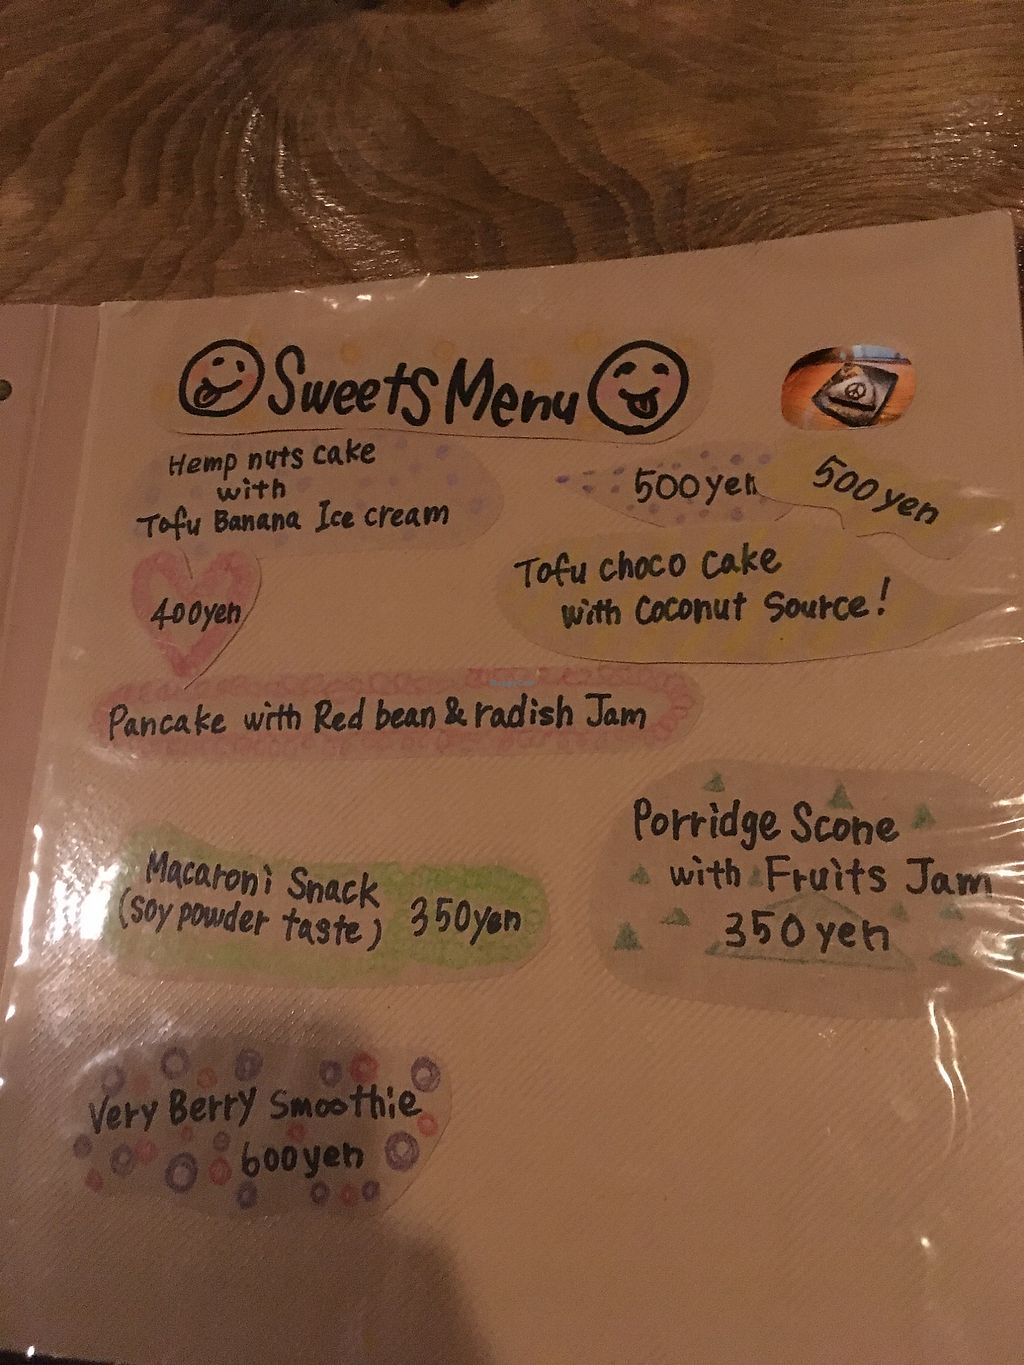 Sweets Menu
Hemp nuts cake
with
Tofu Banana Ice cream
500yen
500yen
Tofu choco cake
with Coconut Source!
400yen
Pancake with Red bean & radish Jam
Macaroni Snack
(soy powder taste) 350yen
Porridge Scone
with Fruits Jam
350yen
Very Berry Smoothie
600yen